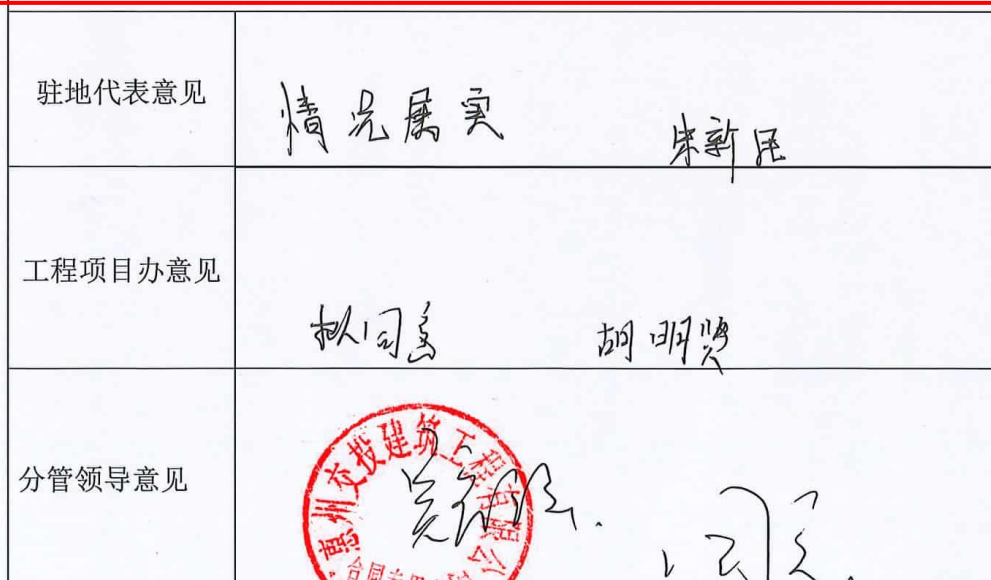 驻地代表意见
情况属实
朱新民
工程项目办意见
拟同意
胡明贤
分管领导意见
惠州交投建筑工程有限公
合同专用